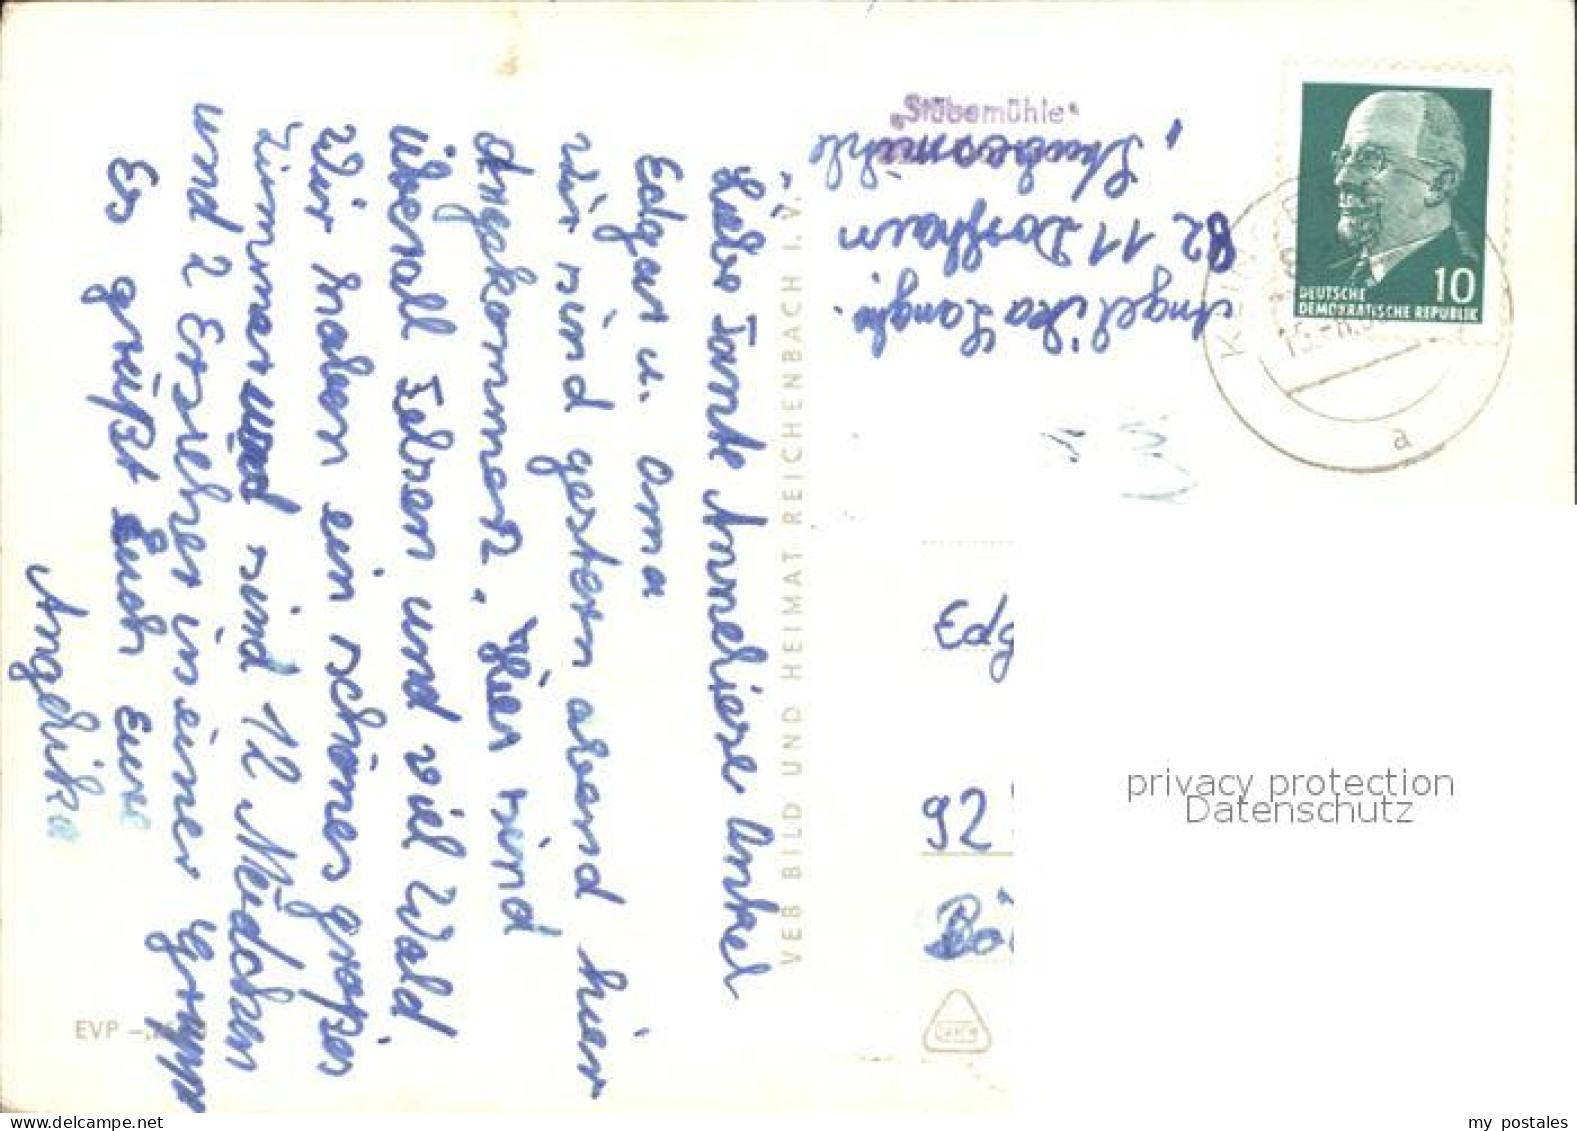 Liebe Tante Anneliese Onkel
Edgar u. Oma
wir sind gestern abend hier
Angekommen. Hier sind
Überall Felsen und viel Wald
Wir haben ein schönes großes
Zimmer und sind 12 Mädchen
und 2 Erzieher in einer Grupp
Es grüßt Euch Eure
Angelika
EVP –,
VEB BILD UND HEIMAT REICHENBACH I. V.
"Stübemühle"
Angelika
8211 Dorfhain
Stubemühle
DEUTSCHE
DEMOKRATISCHE REPUBLIK
10
a
Edg
92
privacy protection
Datenschutz
www.ansichtskartenversand.com
my postales